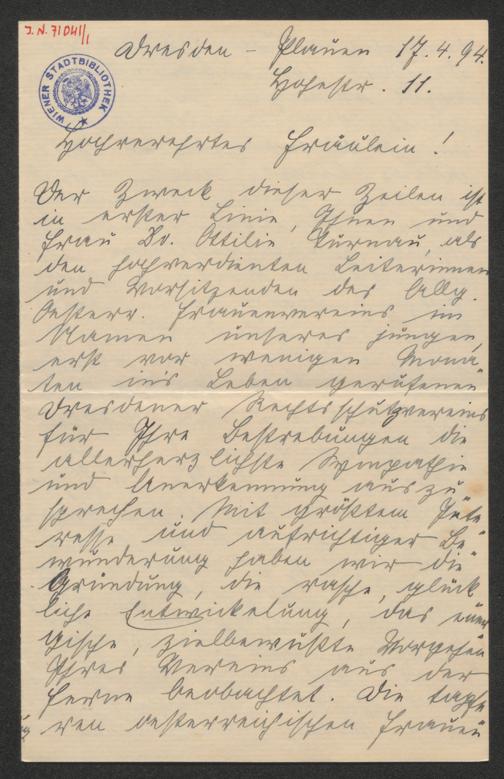 J.N. 71041/1
WIENER STADTBIBLIOTHEK
Dresden - Plauen 17.4.94.
Hohestr. 11.
Hochverehrtes Fräulein!
Der Zweck dieser Zeilen ist
in erster Linie, Ihnen und
Frau Dr. Ottilie Turnau, als
den hochverdienten Leiterinnen
und Vorsitzenden des Allg.
Oesterr. Frauenvereins im
Namen unseres jungen,
erst vor wenigen Mona-
ten in's Leben gerufenen
Dresdener Rechtsschutzvereins
für Ihre Bestrebungen die
allerherzlichste Sympathie
und Anerkennung auszu-
sprechen. Mit größtem Inte-
resse und aufrichtiger Be-
wunderung haben wir die
Gründung, die rasche, glück-
liche Entwickelung, das ener-
gische, zielbewußte Vorgehen
Ihres Vereins aus der
Ferne beobachtet. Die tapfe-
ren oesterreichischen Frauen